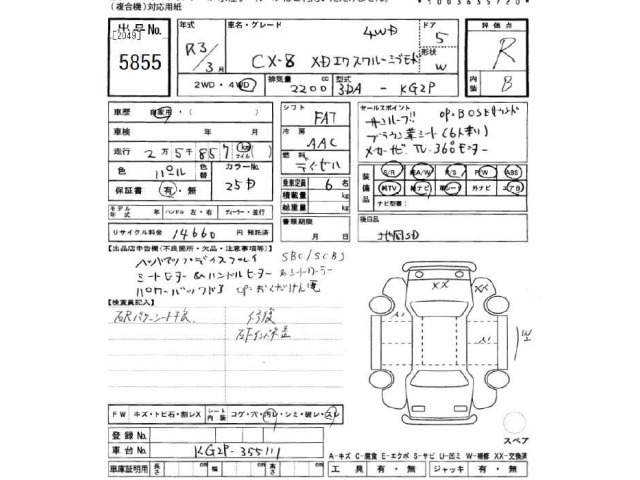 (複合機)対応用紙
出品No.
[2049]
5855
年式
R3/3月
車名・グレード
CX-8 XDエクスクルーシブモード
4WD
ドア
5
形状
W
評価点
R
内装
B
2WD・4WD
排気量
2200
cc
型式
3DA - KG2P
車歴
自家用・( )
車検 年 月
走行 2万5千857 km マイル
色
パール
色替
カラーNo.
25D
保証書 有・無
モデル年式 年
ハンドル 左・右
ディーラー・並行
リサイクル料金 14660 円 預託済
シフト
FAT
冷房
AAC
燃料
ディーゼル
乗車定員 6 名
積載量 kg
総重量 kg
書類期限
月 日
セールスポイント
サンルーフ!! op=BOSEサウンド
ブラウン革シート(6人乗り)
メーカーナビ TV 360°モニター
装備品
S/R
純A/W
P/S
P/W
ABS
純TV
純ナビ
革シート
外ナビ
エアB
ナビ型番( )
後日品
【出品店申告欄(不良箇所・欠品・注意事項等)】
ヘッドアップディスプレイ SBC/SCBS
シートヒーター &ハンドルヒーター
パワーバックドア
【検査員記入】
修復
FW
キズ・トビ石・割レX
シート内装
コゲ・穴・汚レ・シミ・破レ・スレ
登録No.
車台No. KG2P-355111
車庫証明用
長さ cm
幅 cm
高さ cm
XX
XX
W
スペア
A-キズ C-腐食 E-エクボ S-サビ U-凹ミ W-補修 XX-交換済
工具 有・無
ジャッキ 有・無